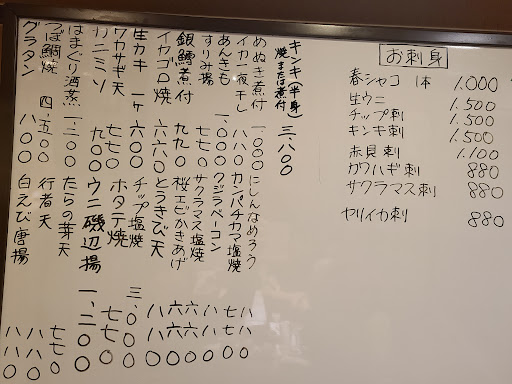 お刺身
春シャコ 1本 1.000
生ウニ 1.500
チップ刺 1.500
キンキ刺 1.500
赤貝刺 1.100
カワハギ刺 880
サクラマス刺 880
ヤリイカ刺 880
キンキ(半身)
焼または煮付 三.八〇〇
めぬき煮付 一.〇〇〇
イカ一夜干し 八八〇
あんきも 一.〇〇〇
すりみ揚 七七〇
銀鱈煮付 九九〇
イカゴロ焼 六六〇
生カキ 一ヶ 六〇〇
ワカサギ天 七七〇
カニミソ 九〇〇
はまぐり酒蒸 一.二〇〇
つぼ鯛焼 四.五〇〇
グラタン 八〇〇
にしんなめろう 八八〇
カンパチカマ塩焼 七七〇
クジラベーコン 八八〇
サクラマス塩焼 六六〇
桜エビかきあげ 六六〇
とうきび天 八八〇
チップ塩焼 三.〇〇〇
ホタテ焼 七七〇
ウニ磯辺揚 一.二〇〇
たらの芽天 七七〇
行者天 八八〇
白えび唐揚 八八〇